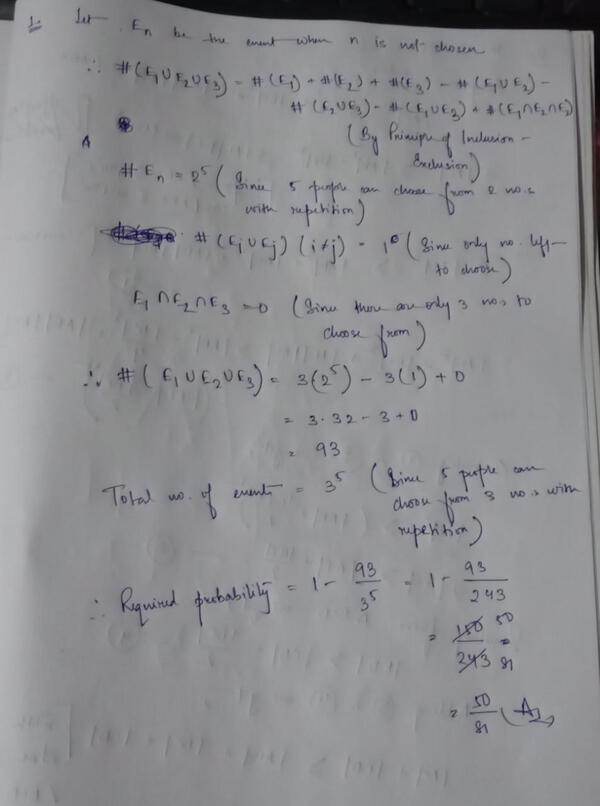 1. Let En be the event when n is not chosen
∴ #(E₁∪E₂∪E₃) = #(E₁) + #(E₂) + #(E₃) - #(E₁∪E₂) -
#(E₂∪E₃) - #(E₁∪E₃) + #(E₁∩E₂∩E₃)
(By Principle of Inclusion -
Exclusion)
A
# En = 2⁵ (Since 5 people can choose from 2 no.s
with repetition)
#(Ei∪Ej) (i≠j) = 1⁰ (Since only no. left
to choose)
E₁∩E₂∩E₃ = 0 (Since there are only 3 no.s to
choose from)
∴ #(E₁∪E₂∪E₃) = 3(2⁵) - 3(1) + 0
= 3·32 - 3 + 0
= 93
Total no. of events = 3⁵ (Since 5 people can
choose from 3 no.s with
repetition)
∴ Required probability = 1 - 93/3⁵ = 1 - 93/243
= 150/243 = 50/81
= 50/81 (A)